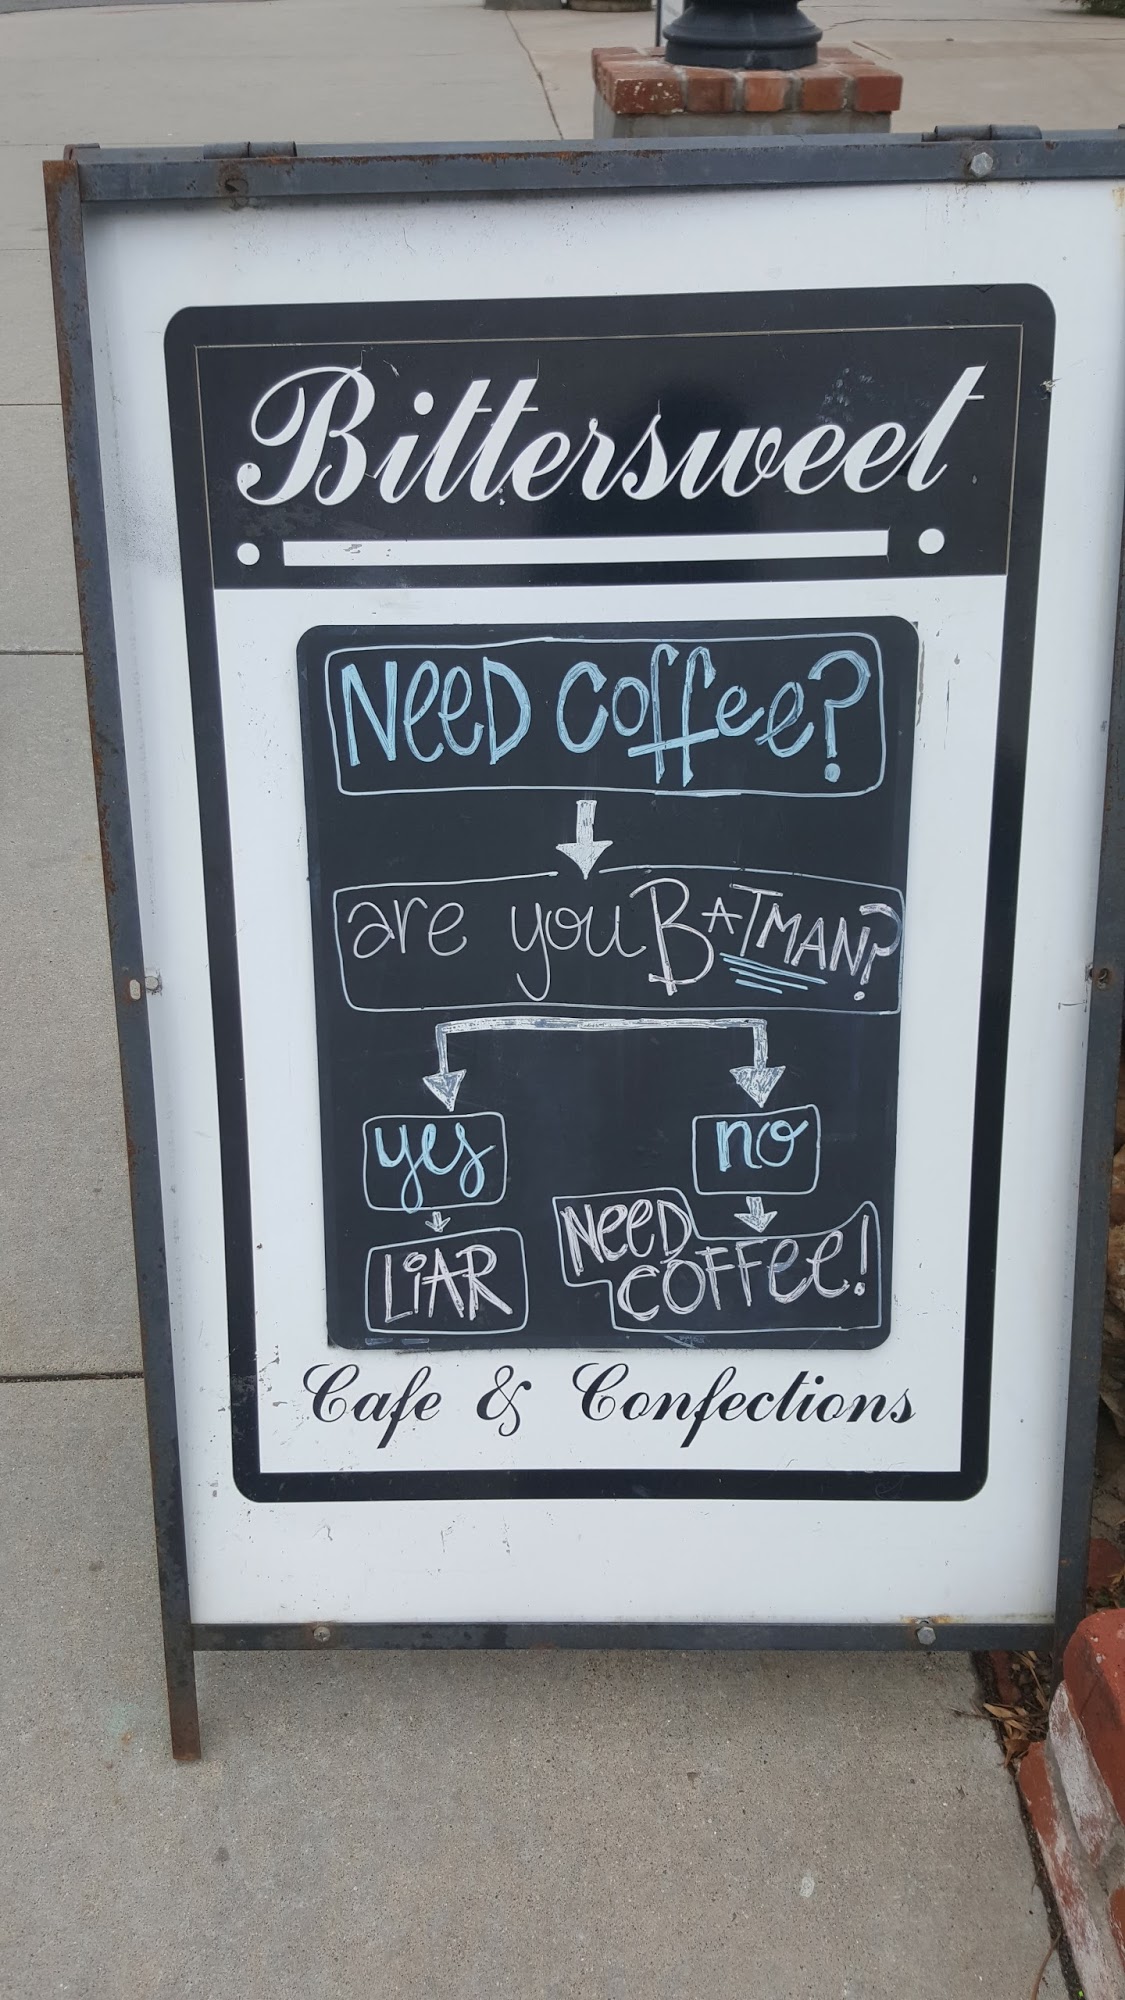 Bittersweet
Need Coffee?
are you BATMAN?
yes
no
LiAR
NeeD
COFFee!
Cafe & Confections